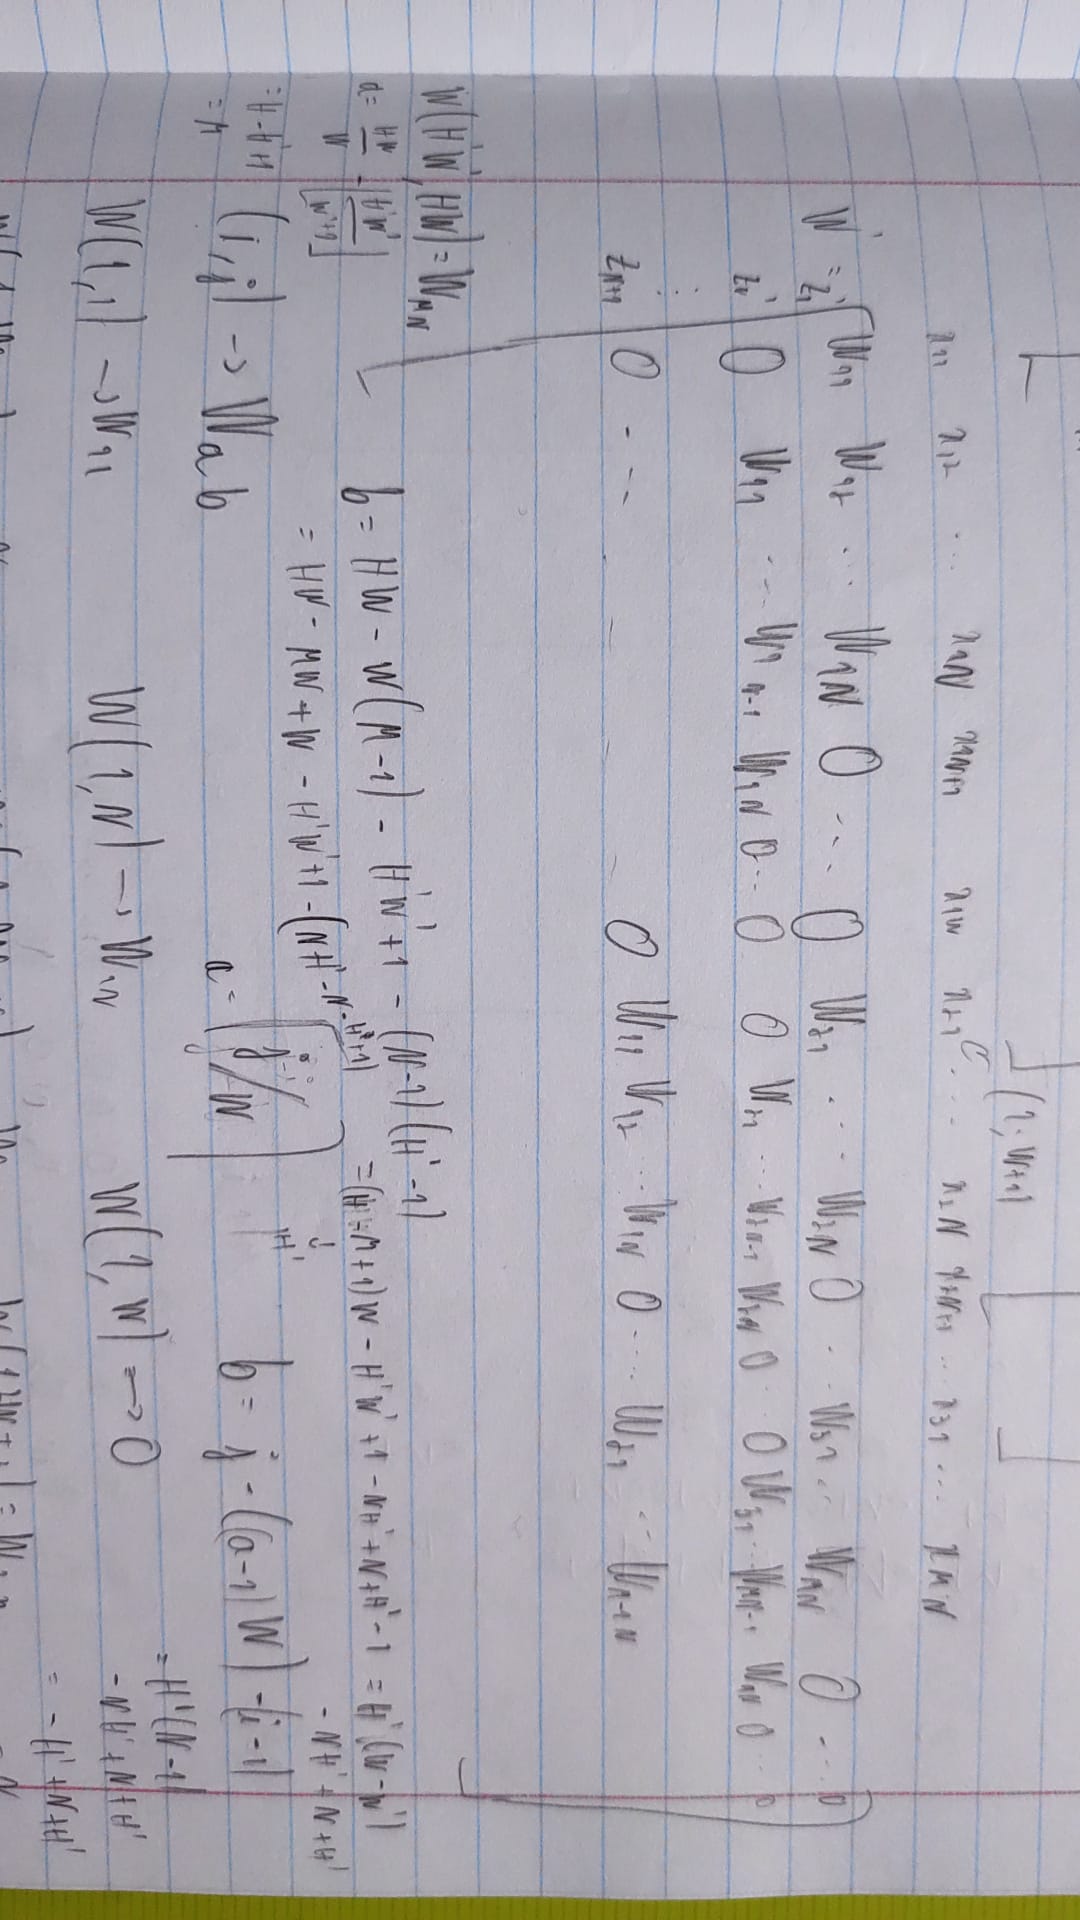 (1, W+1)
x11 x12 ... x1N x1N+1 x1W x21 ... x2N x2N+1 ... x31 ... xMN
W' = z1' W11 W12 ... W1N 0 ... 0 W21 ... W2N 0 ... W31 ... WMN 0 ... 0
0 W11 ... W1N-1 W1N 0 ... 0 0 W21 ... W2N-1 W2N 0 0 W31 ... WMN-1 WMN 0 ... 0
⋮
zN+1 0 ... 0 W11 W12 ... W1N 0 ... W21 ... WM-1N
W(H'W', HW) = WMN
b = HW - W(M-1) - H'W'+1 - (N-1)(H'-1)
= (H-M+1)W - H'W'+1 - NH'+N+H'-1 = H'(W-W')
- NH' + N + H'
↓
H'
= HW - MW + W - H'W'+1 - (NH'-N-H'+1)
a = HW/W - ⌊H'W'/W'+1⌋
= H-H'+1
= M
(i,j) → Wab
a = ⌈j/W⌉
b = j - ((a-1)W) - (i-1)
= H'(N-1)
- NH' + N + H'
= -H' + N + H'
W(1,1) → W11 W(1,N) → W1N W(1,W) → 0